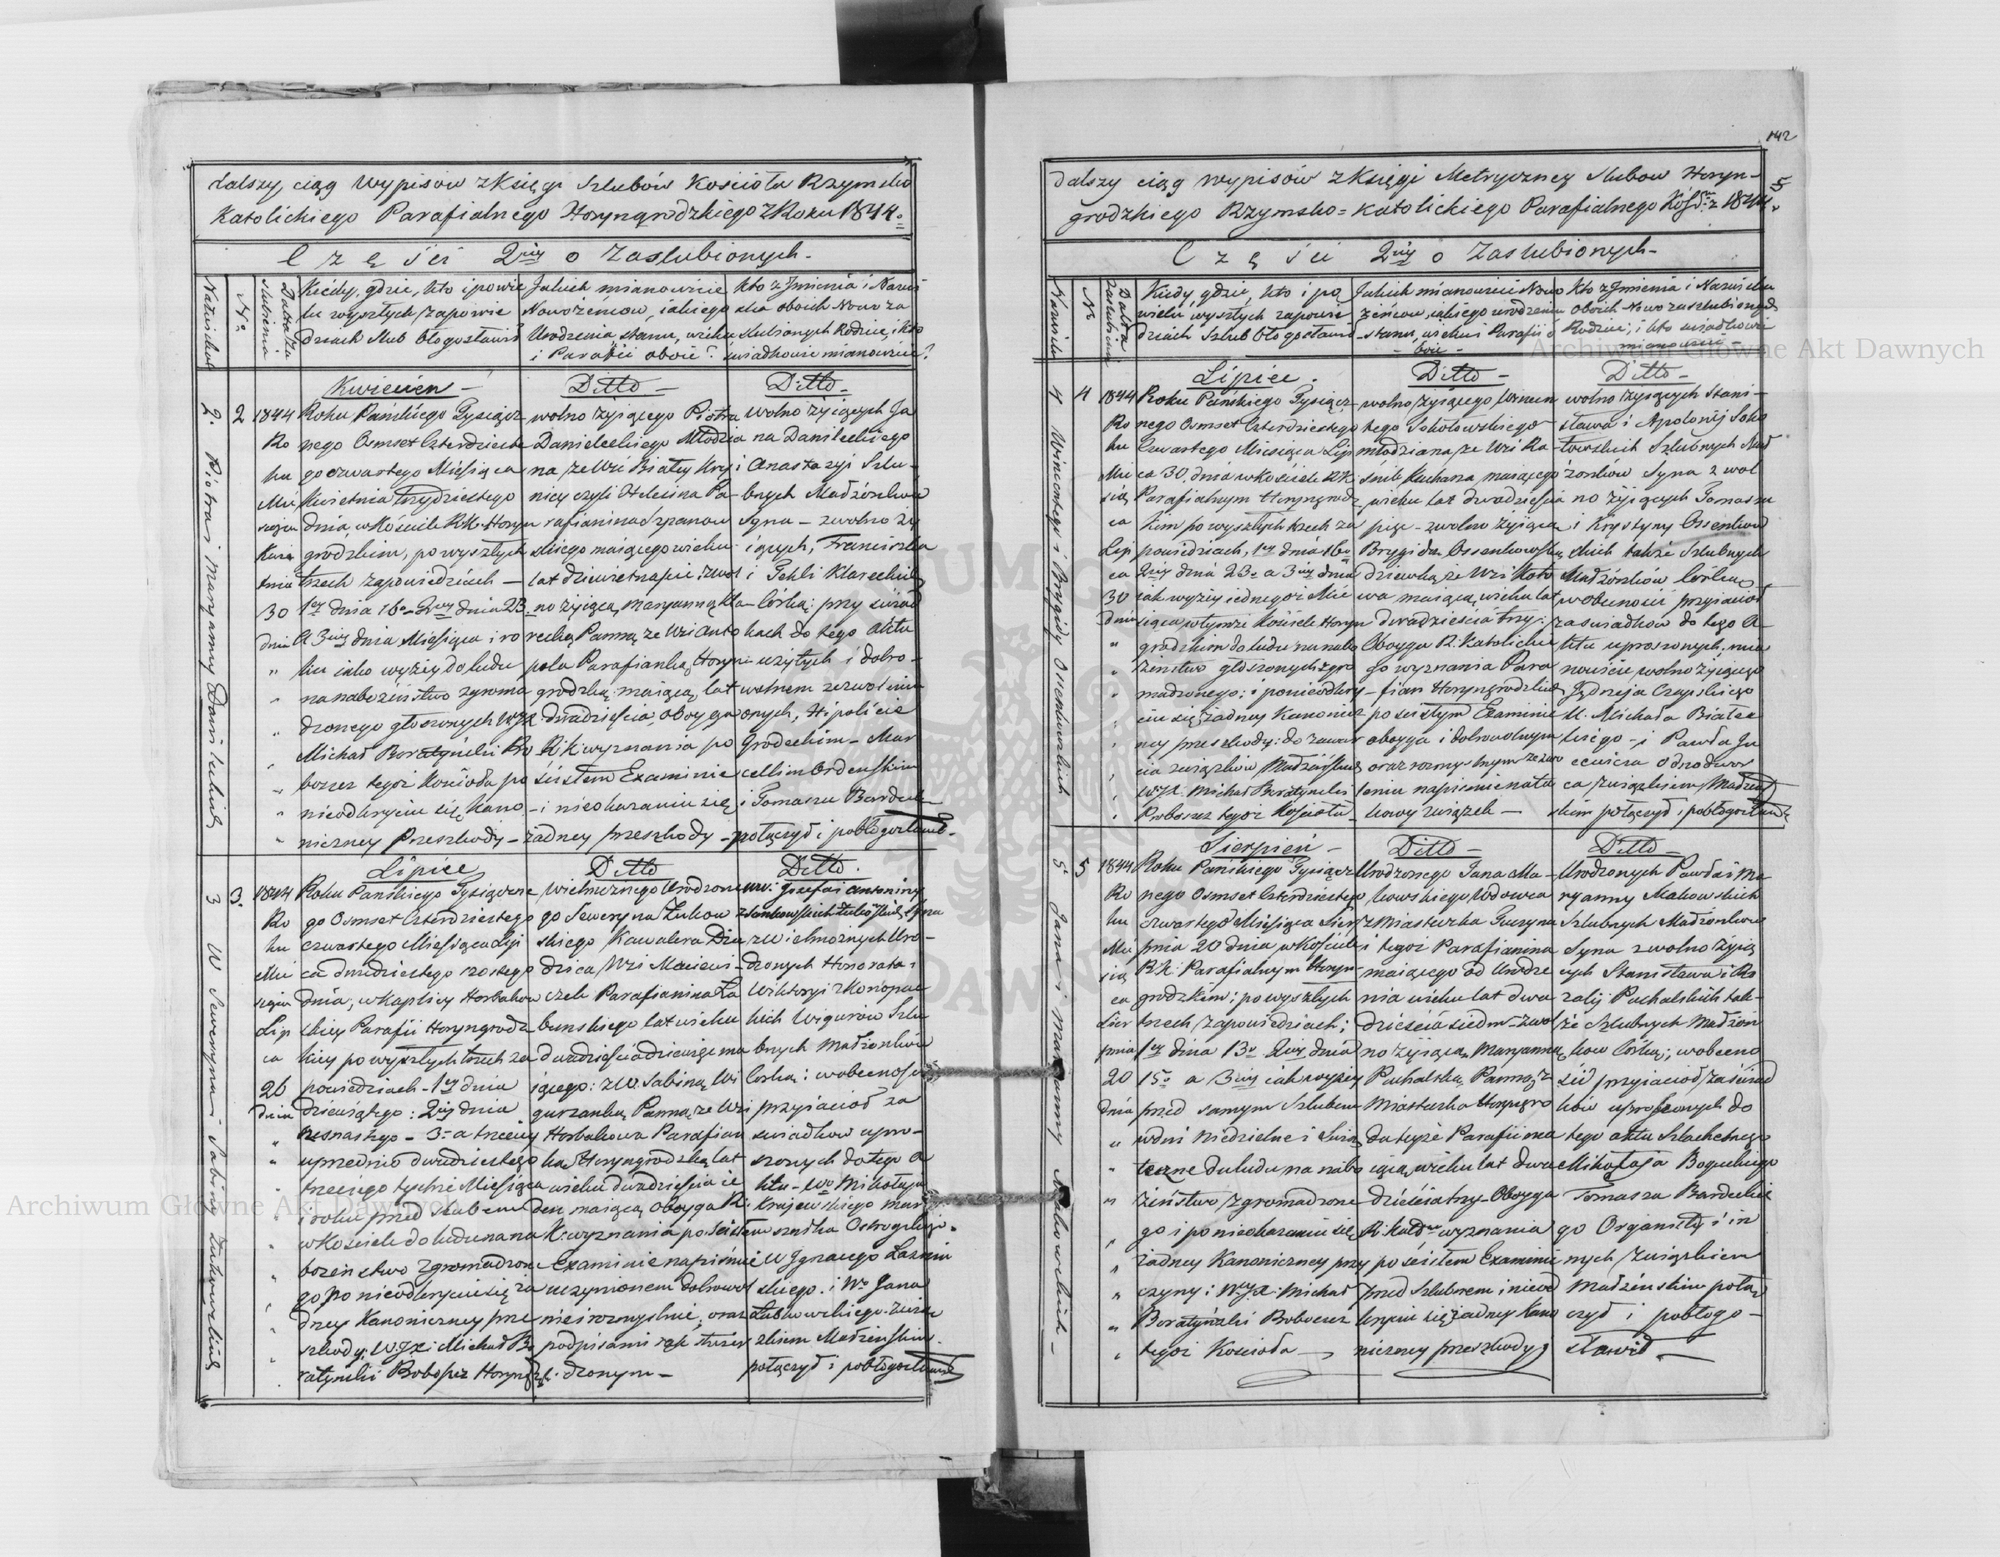 dalszy, ciąg Wypisow z Księgi Szlubów Kościoła Rzymsko
Katolickiego Parafialnego Horyngrodzkiego z Roku 1844.
Części 2giej o Zaslubionych.
Kiedy, gdzie, kto i po wie
lu wyszłych zapowie
dziach Slub błogosławił
Jakich mianowicie
Nowożeńców, jakiego
Urodzenia, stanu, wieku
i Parafii oboie?
Kto z Jmienia i Nazwi
ska oboich Nowo za
slubionych Rodzice, i kto
swiadkowie mianowicie?
2. Piotra i Maryanny Danileckich
2
1844
Ro
ku
Mie
siąca
Kwie
tnia
30
dnia
Kwiecien
Roku Pańskiego Tysiącz
nego Osmset Czterdzieste
go czwartego Miesiąca
Kwietnia trzydziestego
dnia, w Kościele R.K. Horyn
grodzkim, po wyszłych
trzech zapowiedziach
1ej dnia 16o 2giej dnia 23.
a 3ciej dnia Miesiąca i ro
ku jako wyżey do ludu
na nabożeństwo zgroma
dzonego głoszonych WJX
Michał Boratyński Pro
boszcz tegoż Kościoła po
nieodkryciu się kano
niczney Przeszkody
Ditto
wolno żyiącego Piotra
Danieleckiego Młodzia
na, ze Wsi Białey Kry
nicy czyli Heleśna Pa
rafianina Szpanow
skiego maiącego wieku
lat dziewietnaście: z wol
no żyiącą Maryanną Kla
recką Panną ze Wsi Anto
pola Parafianką Horyn
grodzką maiącą, lat
dwadzieścia, oboyga
R.K. wyznania po
ścisłem Examinie
i nieokazaniu się
żadney przeszkody
Ditto
wolno żyiących Ja
na Danileckiego
i Anastazyi Szlu
bnych Małżonków
Syna z wolno ży
iących, Franciszka
i Tekli Klareckich
Córką: przy świad
kach do tego Aktu
użytych i dobro
wolnem zezwoleniu
onych, Hipolicie
Grodeckim Mar
cellim Ordeńskim
i Tomaszu Bardec
połączył i pobłogosławił.
3 W Seweryna i Sabiny Żukowskich
3.
1844
Ro
ku
Mie
siąca
Lip
ca
26
dnia
Lipiec
Roku Pańskiego Tysiączne
go Osmset Czterdziestego
czwartego Miesiąca Lip
ca dwudziestego szostego
dnia, w Kaplicy Horbakow
skiey Parafii Horyngrodz
kiey po wyszłych trzech za
powiedziach 1ej dnia
dziewiątego: 2giej dnia
szesnastego 3o a trzeciey
uprzednio dwudziestego
trzeciego tychże Miesiąca
i roku przed szlubem
w Kościele do ludu na na
bożeństwo zgromadzone
go po nieodkryciu się ża
dney Kanoniczney prze
szkody, WJX: Michał Bo
ratyński Proboszcz Horyng
Ditto
Wielmożnego Urodzone
go Seweryna Żukow
skiego Kawalera Dzie
dzica Wsi Maciewi
czek Parafianina Ła
bunskiego lat wieku
dwadzieścia dziewięć ma
iącego: z W. Sabiną Wi
gurzanką Panną, ze Wsi
Horbakowa Parafian
ką Horyngrodzką lat
wieku dwadzieścia ie
den, maiącą Oboyga R:
K: wyznania po ścisłem
Examinie na piśmie
uczynionem dobrowol
nie i rozmyslnie, oraz
podpisami rąk stwier
dzonym
Ditto.
Jozefa i Antoniny
Żukowskich Syna
z Wielmożnych Uro
dzonych Honorata i
Wiktoryi z Konopac
kich Wigurow Szlu
bnych Małżonków
Córką: i w obecności
przyiacioł za
swiadkow upro
szonych do tego A
ktu Wo Mikołaja
Krajewskiego Mar
szałka Ostrogskiego.
W Jgnacego Łaznin
skiego. i Wo Jana
Łubkowskiego. Związ
kiem Małżeńskim
połączył i pobłogosławił
142
5
Dalszy ciąg wypisów z Księgi Metryczney Slubow Horyn
grodzkiego Rzymsko=Katolickiego Parafialnego Kośc. z 1844
Części 2giej o Zaslubionych
Kiedy, gdzie, kto i po
wielu wyszłych zapowie
dziach Szlub błogosławił
Jakich mianowicie Nowo
żeńcow, iakiego urodzenia
stanu, wieku i Parafii o
boie
Kto z Jmienia i Nazwiska
oboich Nowo zaszlubionych
Rodzice, i kto swiadkowie
mianowicie
4 Wincentego i Brygidy Ossentowskich
4
1844
Ro
ku
Mie
sią
ca
Lip
ca
30
dnia
Lipiec.
Roku Pańskiego Tysiącz
nego Osmset Czterdziestego
Czwartego Miesiąca Lip
ca 30. dnia w Kościele R.K.
Parafialnym Horyngrodz
kim po wyszłych trzech za
powiedziach, 1ej dnia 16o
2giej dnia 23o a 3ciej dnia
iak wyżey iednegoż Mie
siąca w tymże Kościele Horyn
grodzkim do ludu na nabo
żeństwo głoszonych zgro
madzonego: i po nieodkry
ciu się żadney Kanonicz
ney przeszkody: do zawar
cia związkow Małżeńskich
WJX. Michał Boratyński
Proboszcz tegoż Kościoła
Ditto
wolno żyiącego Wincen
tego Sokołowskiego
młodziana, ze Wsi Ka
maiącego
wieku lat dwadzieścia
pięc z wolno żyiącą
Brygidą Ossentowską
dziewką, ze Wsi Koto
wa maiącą, wieku lat
dwadzieścia trzy:
Oboyga R. Katolickie
go wyznania Para
fian Horyngrodzkich
po ścisłym Examinie
oboyga i dobrowolnym
oraz rozmyslnym zezwo
leniu na piśmie na ta
kowy związek
Ditto
wolno żyiących Stani
sława i Apolonij Soko
łowskich Szlubnych Mał
żonkow Syna z wol
no żyiących Tomasza
i Krystyny Ossentow
skich także Szlubnych
Małżonków Córką
w obecności przyiacioł
za swiadkow do tego A
ktu uproszonych, mia
nowicie wolno żyiącego
Jędrzeja Czapskiego
U. Michała Białec
kiego i Pawła Ja
o dnodwor
ca związkiem Małżeń
skim połączył i pobłogosławił
5 Jana i Maryanny Makowskich
5
1844
Ro
ku
Mie
sią
ca
Sier
pnia
20
dnia
Sierpień
Roku Pańskiego Tysiącz
nego Osmset Czterdziestego
czwartego Miesiąca Sier
pnia 20 dnia w Kościele
R.K. Parafialnym Horyn
grodzkim; po wyszłych
trzech zapowiedziach;
1ej dnia 13o 2giej dnia
15o a 3ciej iak wyżey
przed samym Szlubem
w dni Niedzielne i Świą
teczne do ludu na nabo
żeństwo zgromadzone
go i po nieokazaniu się
żadney Kanoniczney prze
czyny i WJX: Michał
Boratyński Proboszcz
tegoż Kościoła
Ditto
Urodzonego Jana Ma
kowskiego Wdowca
z Miasteczka Tuczyna
i tegoż Parafianina
maiącego od Urodze
nia wieku lat dwa
dzieścia siedm z wol
no żyiącą Maryanną
Puchalską Panną z
Miasteczka Horyngro
da teyże Parafii ma
iącą, wieku lat dwa
dzieścia trzy. Oboyga
R. Katol. wyznania
po ścisłem Examinie
przed Szlubem i nieod
kryciu się żadney Kano
niczney przeszkody
Ditto
Urodzonych Pawła i Ma
ryanny Makowskich
Szlubnych Małżonkow
Syna z wolno żyią
cych Stanisława i Ro
zalij Puchalskich tak
że Szlubnych Małżon
kow Córką; w obecno
ści przyiacioł za świad
ków uproszonych do
tego aktu Szlachetnego
Mikołaja Boguckiego
Tomasza Bardeckie
go Organisty i in
nych Związkiem
Małżeńskim połą
czył i pobłogo
sławił
Archiwum Główne Akt Dawnych
Archiwum Główne Akt Dawnych